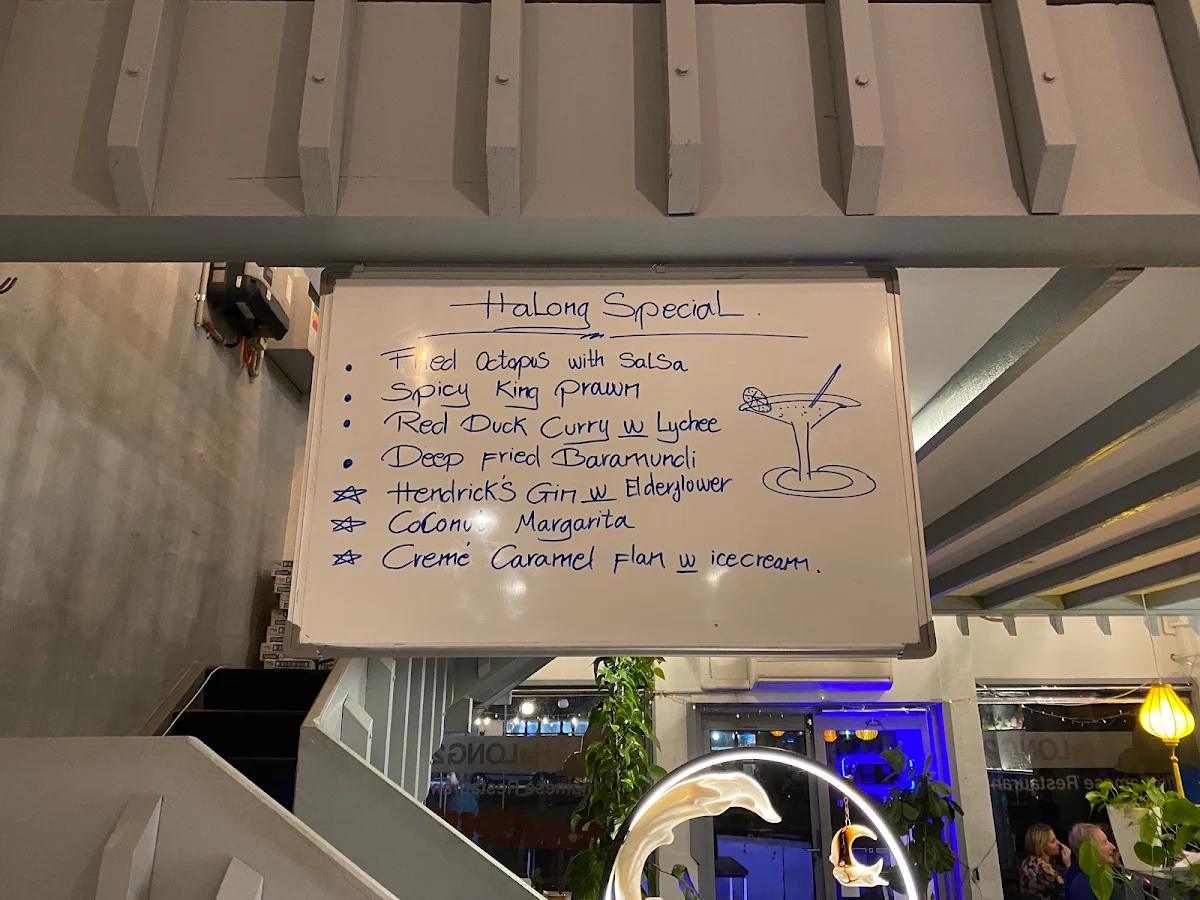 HaLong Special.
• Fried Octopus with Salsa
• Spicy King Prawn
• Red Duck Curry w Lychee
• Deep Fried Baramundi
☆ Hendrick's Gin w Elderflower
☆ Coconut Margarita
☆ Cremé Caramel Flan w icecream.
HaLONG
HaLONG
Restaurant